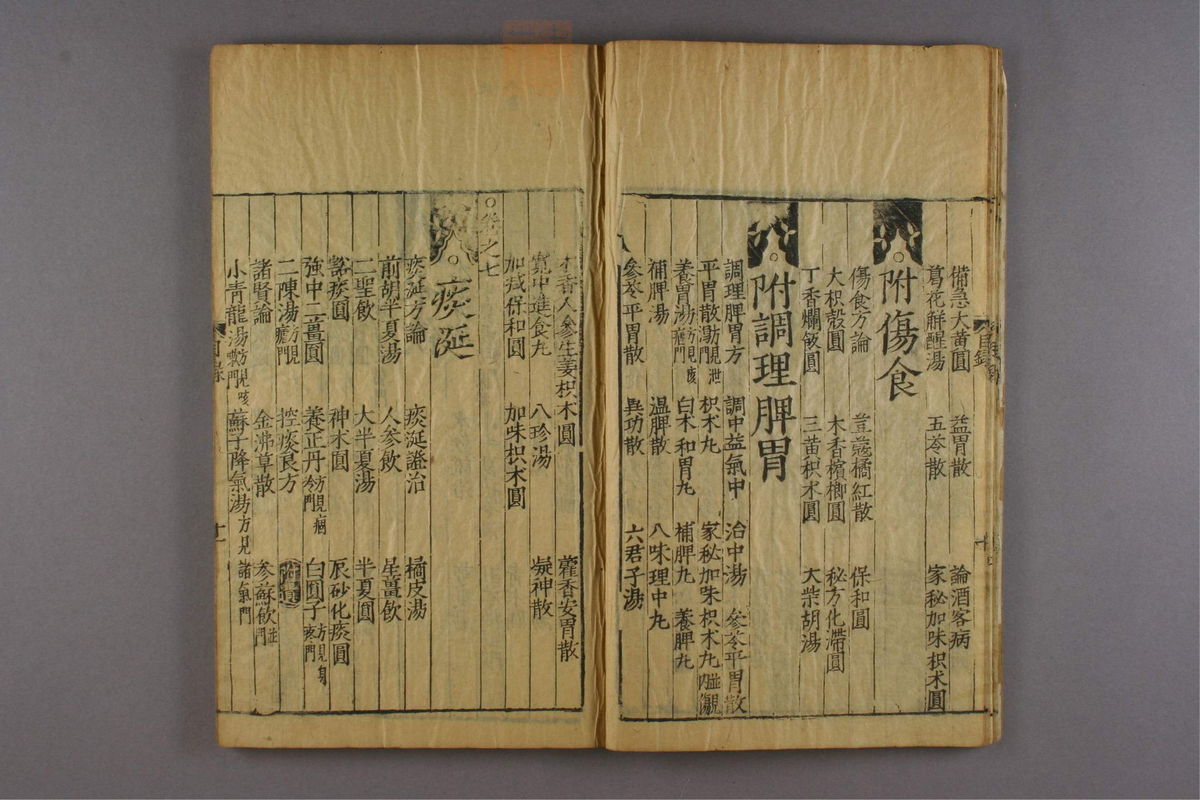 備急大黃圓 益胃散 論酒客病
葛花解醒湯 五苓散 家秘加味枳朮圓
附傷食
傷食方論 荳蔻橘紅散 保和圓
大枳殼圓 木香檳榔圓 秘方化滯圓
丁香爛飯圓 三黃枳朮圓 大柴胡湯
附調理脾胃
調理脾胃方 調中益氣中 治中湯 參苓平胃散
平胃散 枳朮丸 家秘加味枳朮丸
養胃湯 白朮和胃丸 補脾丸 養脾丸
補脾湯 溫脾散 八味理中丸
參苓平胃散 異功散 六君子湯
木香人參生姜枳朮圓 藿香安胃散
寬中進食丸 八珍湯 凝神散
加減保和圓 加味枳朮圓
卷之七
痰涎
痰涎方論 痰涎證治 橘皮湯
前胡半夏湯 人參飲 星薑飲
二聖飲 大半夏湯 半夏圓
豁痰圓 神朮圓 辰砂化痰圓
強中二薑圓 養正丹 白圓子
二陳湯 控痰良方
諸賢論 金沸草散 參蘇飲並
小青龍湯方見咳嗽門 蘇子降氣湯方見 諸氣門